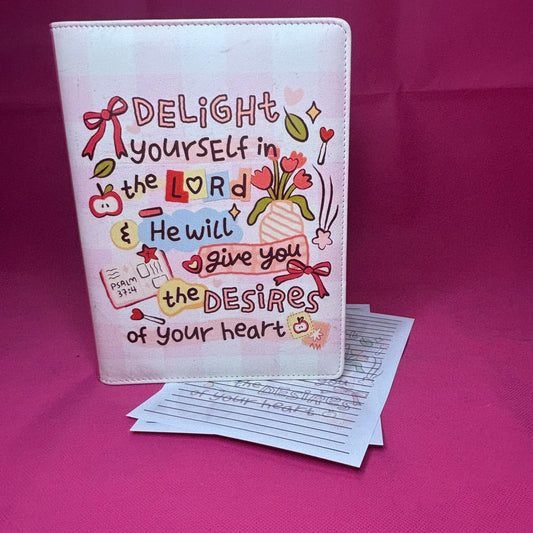 DELiGHT
yOURSELf in
the LORd
& He will
give you
PSALM
37:4
the DESiRES
of your heart
the DESiRES
of your heart